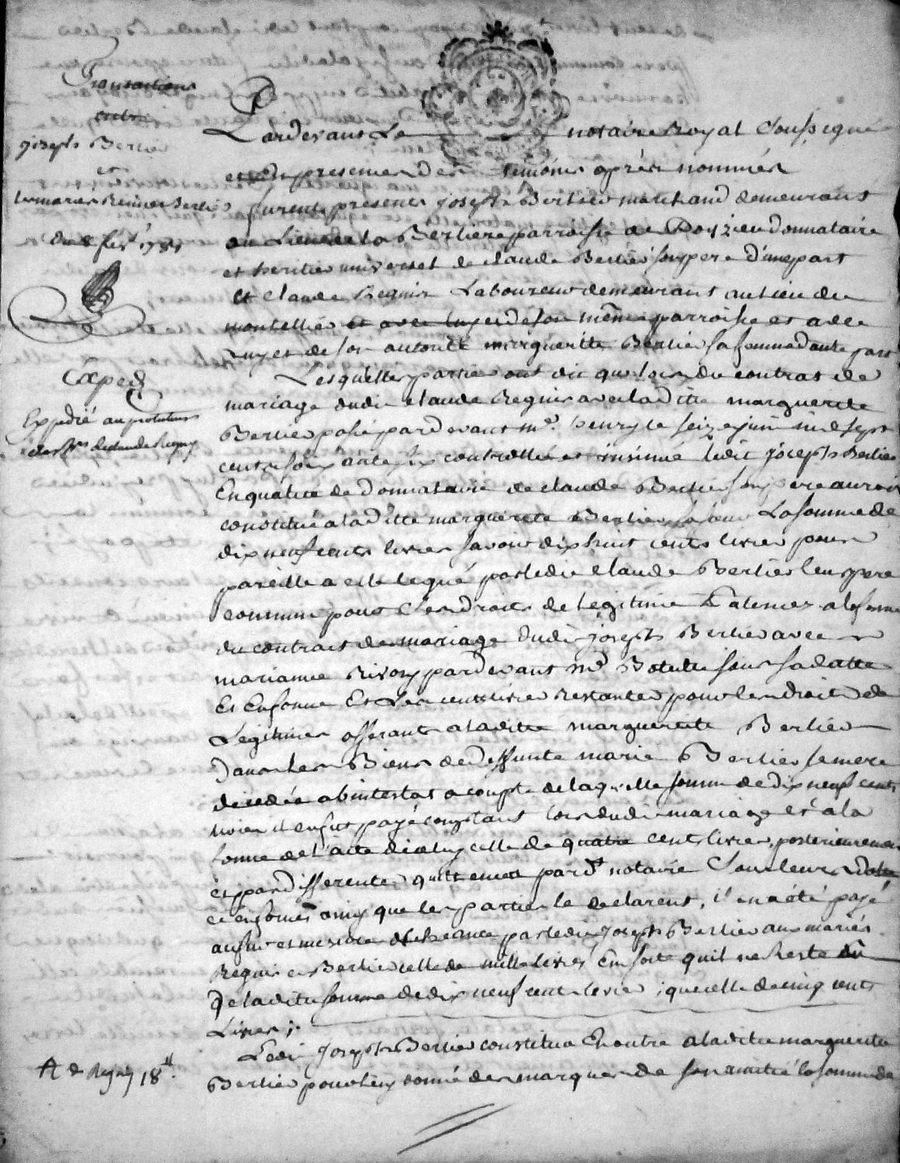 Transaction
entre
joseph Bertier
et
les mariés Reinier Bertier
du 8 fevr 1781
Exped
Expedié au protuteur
des Srs de claude Regny
Pardevant Le notaire Royal Soussigné
et En presence des temoins après nommés
furent presents joseph Bertier marchand demeurant
au Lieu de la Bertiere parroisse de Doizieu donnataire
et heritier universel de claude Bertier son pere d'une part
Et claude Regnir Laboureur demeurant au lieu du
montellier et avec luy et de son même parroisse et avec
luy et de son autorité marguerite Bertier sa femme d'autre part
Lesquelles parties ont dit que lors du contrat de
mariage dudit claude Regnir avec laditte marguerite
Bertier passé pardevant me henry le seize juin mil sept
cent soixante six controllé et insinué ledit joseph Bertier
En qualité de donnataire de claude Bertier son pere auroit
constitué a laditte marguerite Bertier sa soeur La somme de
dix neuf cents livres savoir dix huit cents livres pour
pareille a elle legué par ledit claude Bertier leur pere
commun pour ses droits de legitime Paternel a la forme
du contrat de mariage dudit joseph Bertier avec
marianne Rivory pardevant me sous sa datte
Et En forme Et Les cent livres Restantes pour les droits de
Legitimes afferants a laditte marguerite Bertier
dans les Biens de deffunte marie Bertier sa mere
decedée abintestat a compte de laquelle somme de dix neuf cents
livres il en fut payé comptant lors dudit mariage et a la
forme de l'acte diceluy celle de quatre cent livres, posterieurement
et par differentes quittances pard. notaire Sous leurs dattes
et en formes ainsy que les parties le declarent, il en a été payé
au fur et mesure d'echeance par ledit joseph Bertier aux mariés
Regnir et Bertier celle de mille livres En sorte qu'il ne Reste dû
De laditte somme de dix neuf cent livres, que celle de cinq cents
Livres;
Ledit joseph Bertier constitua En outre a laditte marguerite
Bertier pour luy donné des marques de son amitié la somme de
A de Regny 18tt.